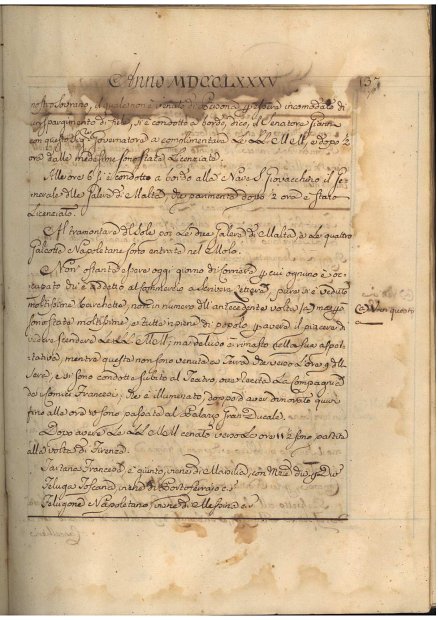 Anno MDCCLXXXV
137
nostro Sovrano, il quale non è venuto di Persona p. essere incomodato di
un spargimento di fiele, si è condotto a bordo, dico, il Senatore Gianni
con questo Governatore a complimentare Le LL. MM., e dopo 2
ore dalle medesime sono stati Licenziati.
Alle ore 6 si è condotto a bordo alla Nave S. Giovacchino il Ge-
nerale delle Galere di Malta, che parimente dopo 2 ore è stato
Licenziato.
Al tramontare del Sole poi Le due Galere di Malta, e Le quattro
Galeotte Napoletane sono entrate nel Molo.
Non ostante essere oggi giorno di corriere, p. cui ognuno è oc-
cupato chi è addetto al commercio a scrivere lettere, pure si è veduto
moltissime barchette, non in numero dell'antecedente volta,
sono state moltissime, e tutte ripiene di popolo, p. avere il piacere di
vedere scendere Le LL. MM.; ma deluso è rimasto della sua aspet-
tativa, mentre queste non sono venute a Terra che verso l'ore 9 di
sera, e si sono condotte subito al Teatro, ove Recita La Compagnia
de' Comici Francesi, che è illuminato, dopo d'aver dimorato quivi
fino alle ore 10 sono passate al Palazzo Gran Ducale.
Dopo avere Le LL. MM. cenato verso Le ore 11½ sono partite
alla volta di Firenze.
Tartana Francese, è giunto, viene di Marsilia, con
Feluga Toscana, viene di Portoferraio
Felugone Napoletano, viene di Messina